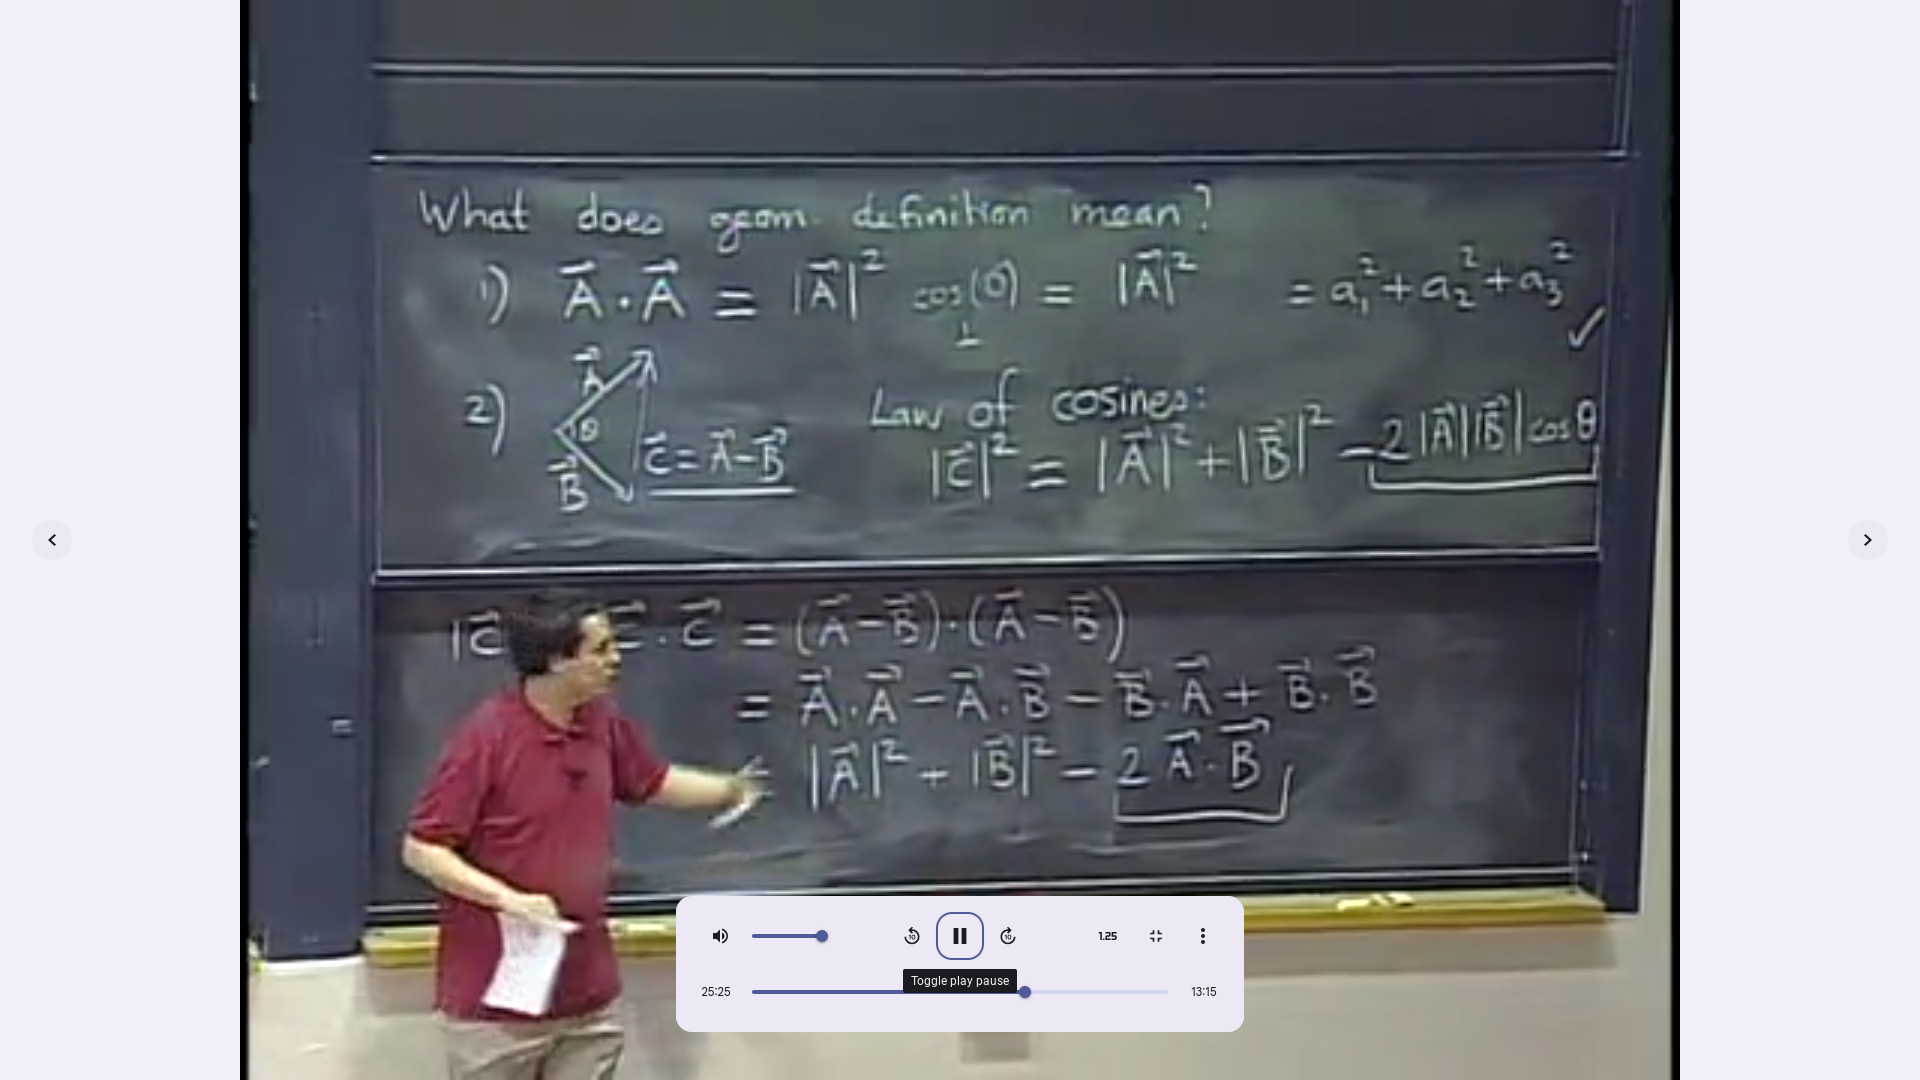 What does geom. definition mean?
1) A⃗ · A⃗ = |A⃗|² cos(0) = |A⃗|² = a₁² + a₂² + a₃² ✓
1
2) A⃗ θ B⃗ C⃗ = A⃗ − B⃗
Law of cosines:
|C⃗|² = |A⃗|² + |B⃗|² − 2|A⃗||B⃗| cos θ
|C⃗ C⃗ · C⃗ = (A⃗ − B⃗) · (A⃗ − B⃗)
= A⃗ · A⃗ − A⃗ · B⃗ − B⃗ · A⃗ + B⃗ · B⃗
= |A⃗|² + |B⃗|² − 2 A⃗ · B⃗
10 10 1.25
Toggle play pause
25:25 13:15